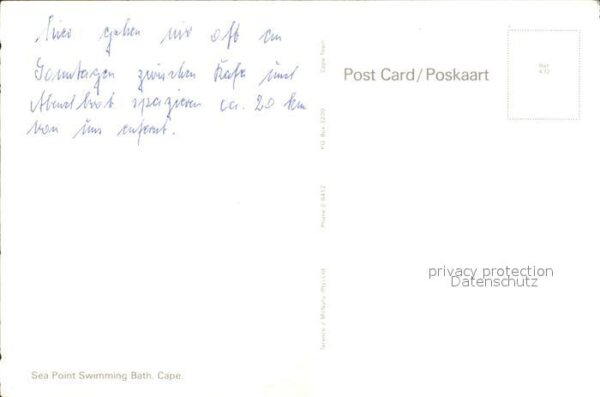 Hier gehen wir oft an
Sonntagen zwischen Kafe und
Abendbrot spazieren ca. 20 km
von uns enfernt.
Post Card/Poskaart
PO Box 3200 Cape Town
Phone
privacy protection
Datenschutz
Sea Point Swimming Bath. Cape.